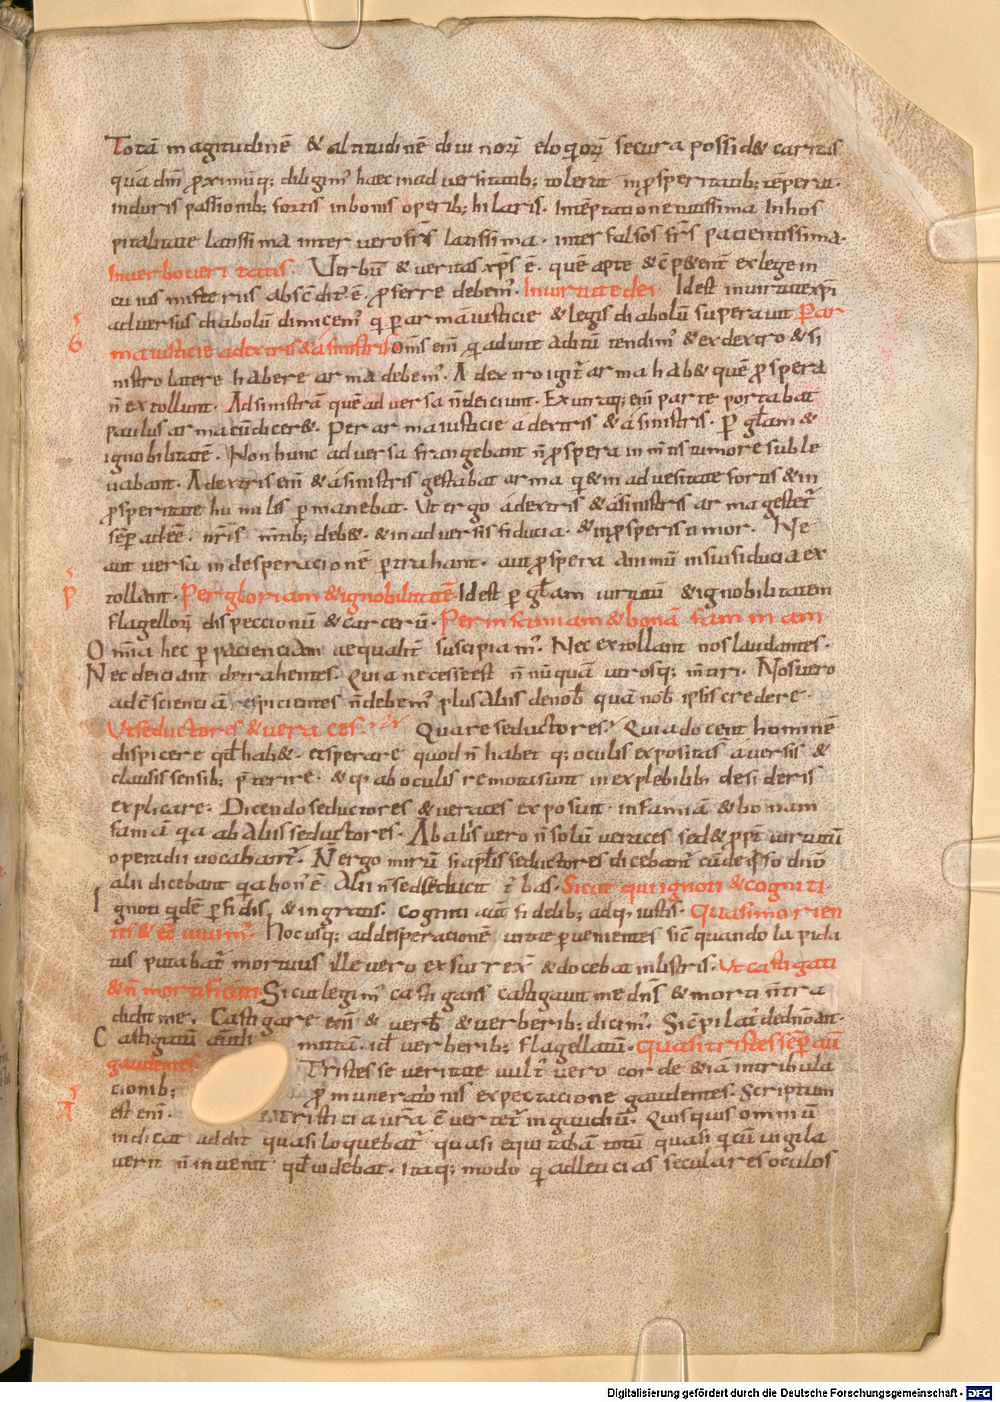 Totā magitudinē & altitudinē divinorꝝ eloqiorꝝ secura possid& caritas
qua dm̄ proximūq; diligim' haec in adversitatib; tolerat in prosperitatib; tēperat.
In duris passionib; fortis in bonis operib; hilaris. In tēptatione tutissima In hos
pitalitate latissima inter veros fr̄s latissima. inter falsos fr̄s pacientissima.
In verbo veritatis. Verbū & veritas xp̄s ē. quē apte & cōpetent̄ ex lege in
cuius misteriis abscōdit' ē. proferre debem'. In virtute dei Id est in virtute xp̄i
adversus diabolū dimicem' q per arma iusticie & legis diabolū superavit Per
arma iusticie a dextris & a sinistris Om̄s enī qi ad vite aditū tendim' & ex dextro & si
nistro latere habere arma debem'. A dextro igit̄ arma hab& quē prospera
n̄ extollunt. Ad sinistrā quē adversa n̄ deiciunt. Ex utraq; enī parte portabat
paulus arma cū dicer&. Per arma iusticie a dextris & a sinistris. Per glām &
ignobilitatē. Non hunc adversa frangebant n̄ prospera in mn̄tis tumore suble
vabant. A dextris enī & a sinistris gestabat arma qi & in advesitate fortis & in
prosperitate humilis permanebat. Ut ergo a dextris & a sinistris arma gestet̄
sēper adeē nr̄is mn̄tib; deb& & in adversis fiducia. & in prosperis timor. Ne
aut versa in desperacionē pertrahant. aut prospera animū in sui fiducia ex
tollant. Per gloriam & ignobilitatē Id est per glām virtutū & ignobilitatem
flagellorꝝ dispeccionū & carcerū. Per infamiam & bonā famam
Omnia hec per pacienciam aequalit̄ suscipiam'. Nec extollant nos laudantes.
Nec deiciant detrahentes. Quia necesse est n̄ nūquā utrosq; mn̄tiri. Nos vero
ad cōscienciā respicientes n̄ debem' plus aliis de nob̄ quā nob̄ ipsis credere.
Ut seductores & veraces. Quare seductores Quia docent hominē
dispicere qd̄ hab& et sperare quod n̄ habet q; oculis expositas aversis &
clausis sensib; p̄terire. & qi ab oculis remota sunt inexplebilibi desideris
explicare. Dicendo seductores & veraces exposuit infamiā & bonam
famā qa ab aliis seductores. Ab aliis vero n̄ solū veraces sed & ppt̄ virtutū
opera dii vocabant̄. N̄ ergo mirū si apl̄is seductores dicebant̄ cū de ipso dn̄o
alii dicebant qa bon' ē Alii n̄ sed seducit tūbas. Sicut qui ignoti & cogniti.
Ignoti qidē perfidis & ingratis. cogniti aut̄ fidelib; adq. iustis. Quasi morien
tes & ecē vivim'. Hoc usq; ad desperacionē vitae pervenientes sic quando lapida
tus putabat̄ mortuus ille vero exsurrex̄ & docebat in listris. Ut castigati
& n̄ mortificati Sicut legim' castigans castigavit me dn̄s & morti n̄ tra
didit me. Castigare enī & verb̄ & verberib; dicim'. Sic pilat̄ de dn̄o ait.
Castigatū mittam. id̄ verberib; flagellatum. Quasi tristes sēper aut̄
gaudentes. Tristes se veritate vult vero corde & iā in tribula
cionib; pro muneratōnis expectacione gaudentes. Scriptum
est enī. tristicia vr̄a cōvertet̄ in gaudiū. Quisquis omniū
indicat addit quasi loquebat̄ quasi equitabā totū quasi qi cū vigila
verit n̄ invenit qd̄ videbat. Itaq; modo qi ad leucias seculares oculos
Digitalisierung gefördert durch die Deutsche Forschungsgemeinschaft - DFG